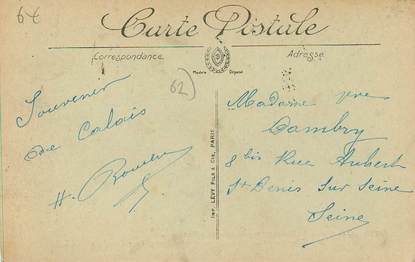 6€
Carte Postale
Correspondance
Adresse
Modèle Déposé
62)
Souvenir
de Calais
H.
IMP. LÉVY FILS & Cie, PARIS
Madame Vve
Dambry
8 bis Rue Aubert
St Denis Sur Seine
Seine